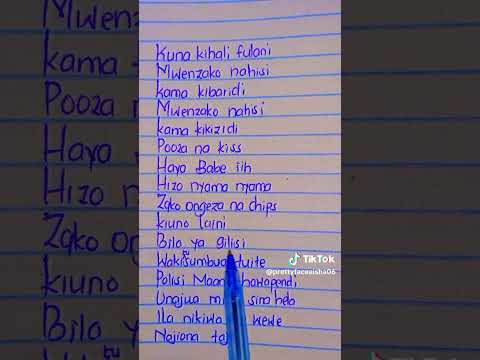 Kuna kihali fulani
Mwenzako nahisi
kama kibaridi
Mwenzako nahisi
kama kikizidi
Pooza na kiss
Haya Babe iih
Hizo nyama nyama
Zako ongeza na chips
kiuno laini
Bila ya gilisi
Wakisumbua tuite
Polisi Maana hawapendi
Unajua mi sina hela
Ila nikiwa wewe
Najiona
TikTok
@prettyfaceaisha06